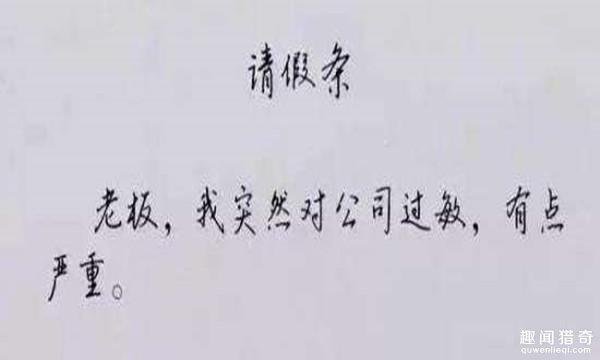 请假条
老板，我突然对公司过敏，有点
严重。
趣闻猎奇
quwenlieqi.com